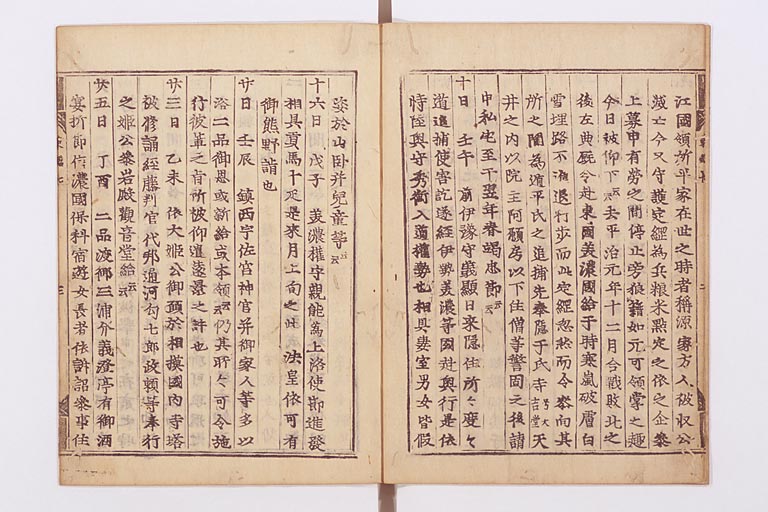 江國領所平家在世之時者稱源家方人被収公
滅亡今又守護定經為兵粮米點定之依之企參
上募申有勞之間停止旁狼藉如元可領掌之趣
今日被仰下云々去平治元年十二月合戰敗北之
後左典厩令赴東國美濃國給于時寒嵐破膚白
雪埋路不進退行歩而此定經忽然而令參向其
所之間為遁平氏之追捕先奉隱于氏寺号大吉堂天
井之内以院主阿願房以下住僧等警固之後請
申私宅至于翌年春竭忠節云々
十日 壬午 前伊豫守義顯日來隱住所々度々
遁追捕使害訖遂經伊勢美濃等國赴奥州是依
恃陸奥守秀衡入道權勢也相具妻室男女皆假
姿於山臥并兒童等云々
十六日 戊子 美濃權守親能為上洛使節進發
相具貢馬十疋是來月上旬之比 法皇依可有
御熊野詣也
廿日 壬辰 鎮西宇佐宮神官并御家人等多以
浴二品御恩或新給或本領云々仍其所々可令施
行彼輩之旨所被仰遣遠景之許也
廿三日 乙未 依大姫公御願於相摸國内寺塔
被修誦經藤判官代邦通河勾七郎政頼等奉行
之姫公參岩殿觀音堂給云々
廿五日 丁酉 二品渡御三浦介義澄亭有御酒
宴折節信濃國保科宿遊女長者依訴訟參事住